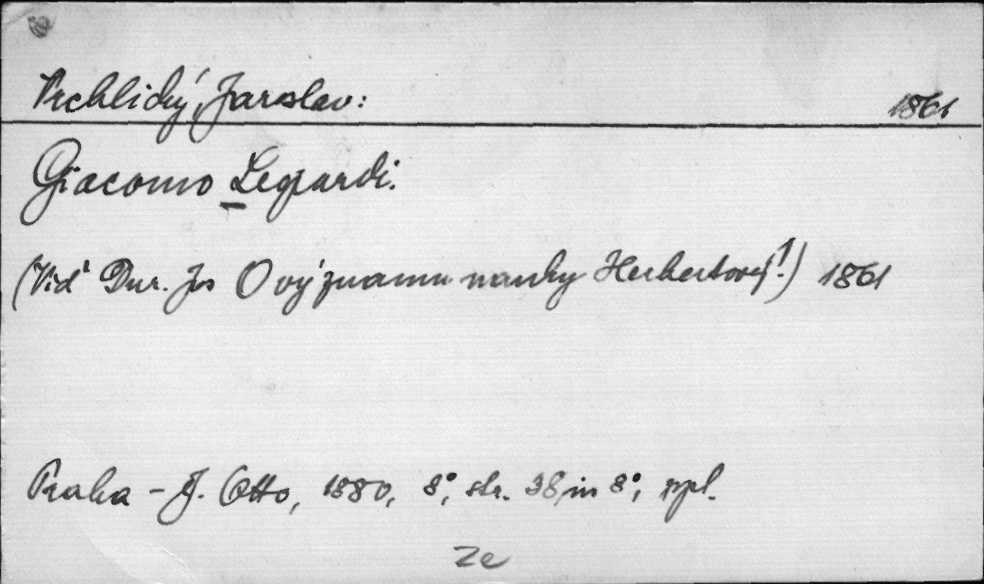 Vrchlický, Jaroslav: 1861
Giacomo Legpardi.
(Viď Dur. Jos O významu nauky Herbertovy!) 1861
Praha - J. Otto, 1880, 8°, str. 38, in 8°, ppl.
Ze